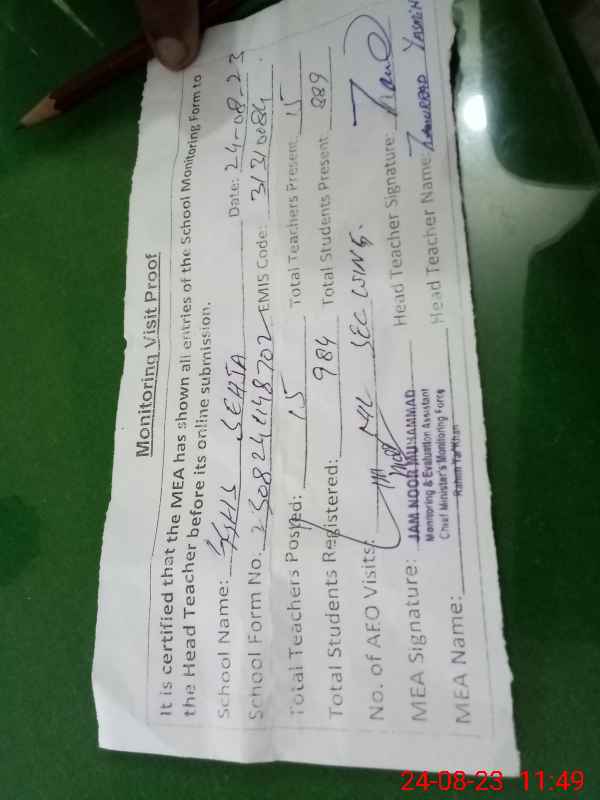 Monitoring Visit Proof
It is certified that the MEA has shown all entries of the School Monitoring Form to
the Head Teacher before its online submission.
School Name: SEHJA Date: 24-08-23
School Form No. EMIS Code: 31310084
Total Teachers Posted: 15 Total Teachers Present: 15
Total Students Registered: 984 Total Students Present 889
No. of AEO Visits: NIL SEC WING.
MEA Signature: Head Teacher Signature:
JAM NOOR MUHAMMAD
Monitoring & Evaluation Assistant
Chief Minister's Monitoring Force
Rahim Yar Khan
MEA Name: Head Teacher Name: YASMIN
24-08-23 11:49